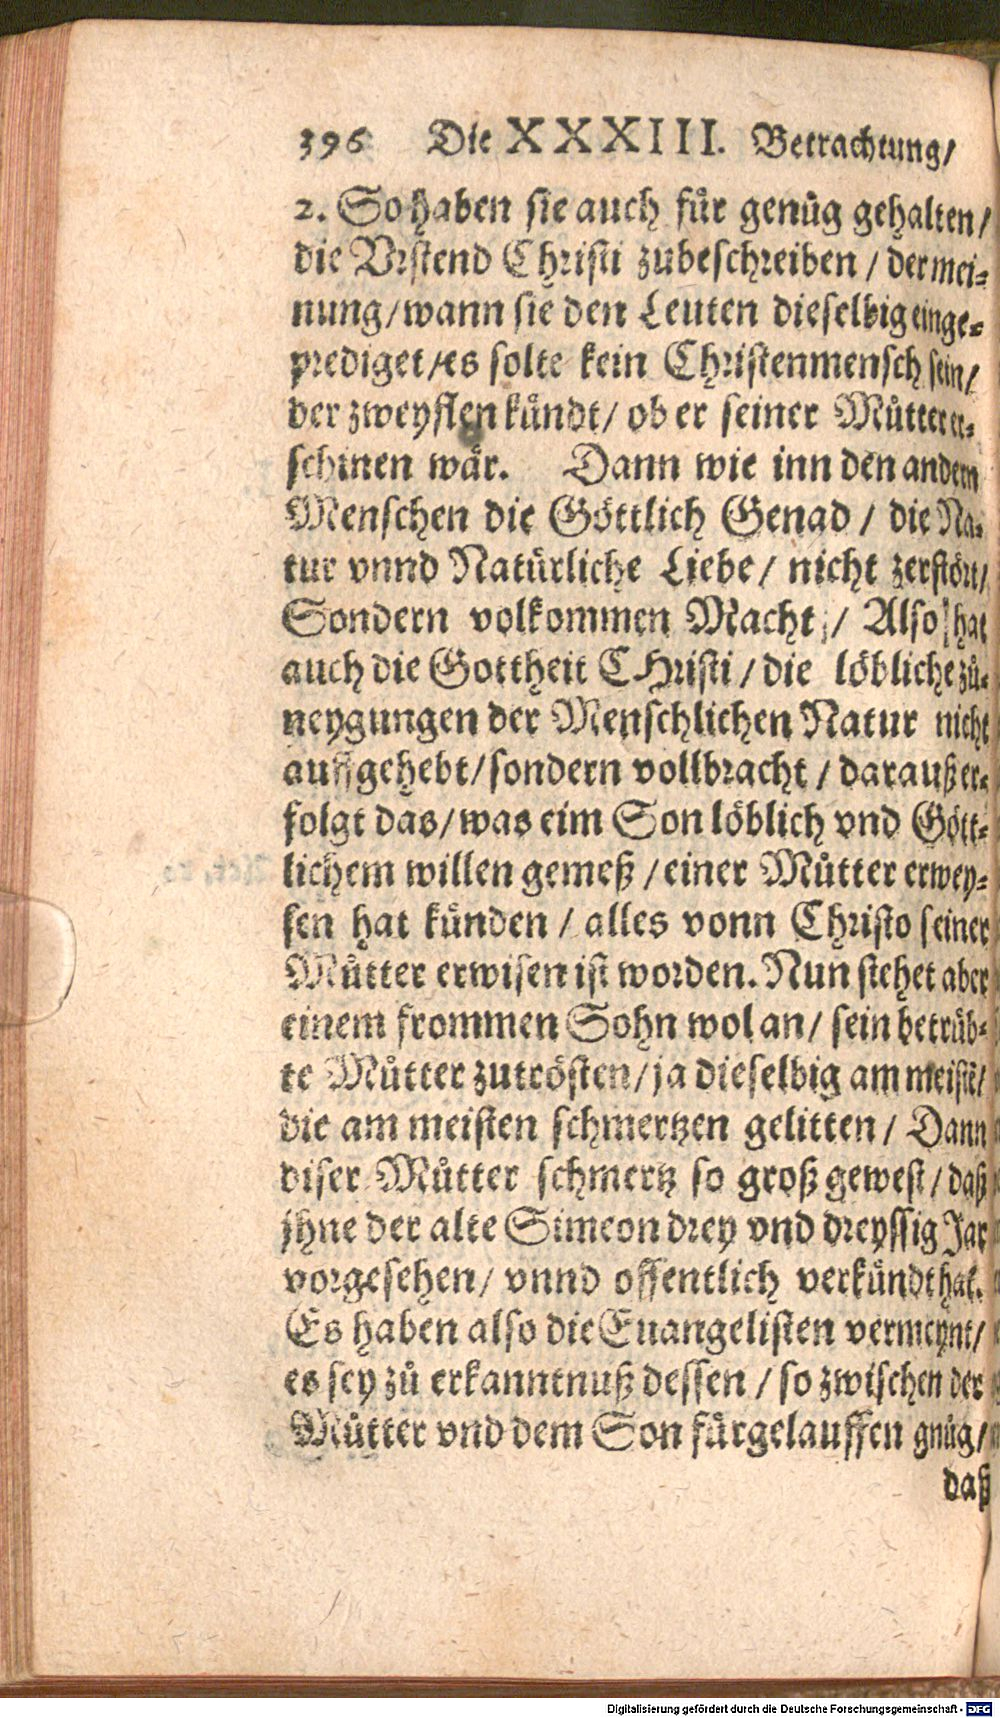 396 Die XXXIII. Betrachtung/
2. So haben sie auch fuͤr genuͦg gehalten/
die Vrstend Christi zubeschreiben / der mei⸗
nung/wann sie den Leuten dieselbig einge⸗
prediget/es solte kein Christenmensch sein/
der zweyflen kuͤndt/ ob er seiner Muͦtter er⸗
schinen waͤr. Dann wie inn den andern
Menschen die Goͤttlich Genad / die Na⸗
tur vnnd Natuͤrliche Liebe/ nicht zerstoͤrt/
Sondern volkommen Macht / Also hat
auch die Gottheit CHristi / die loͤbliche zuͦ⸗
neygungen der Menschlichen Natur nicht
auffgehebt/sondern vollbracht / darauß er⸗
folgt das/was eim Son loͤblich vnd Goͤtt⸗
lichem willen gemeß / einer Muͦtter erwey⸗
sen hat kuͤnden / alles vonn Christo seiner
Muͦtter erwisen ist worden. Nun stehet aber
einem frommen Sohn wol an/ sein betruͤb⸗
te Muͦtter zutroͤsten/ja dieselbig am meistẽ/
die am meisten schmertzen gelitten / Dann
diser Muͦtter schmertz so groß gewest / daß
jhne der alte Simeon drey vnd dreyssig Jar
vorgesehen/ vnnd offentlich verkuͤndt hat.
Es haben also die Euangelisten vermeynt/
es sey zuͦ erkanntnuß dessen / so zwischen der
Muͦtter vnd dem Son fuͤrgelauffen gnuͦg/
daß
Digitalisierung gefördert durch die Deutsche Forschungsgemeinschaft - DFG